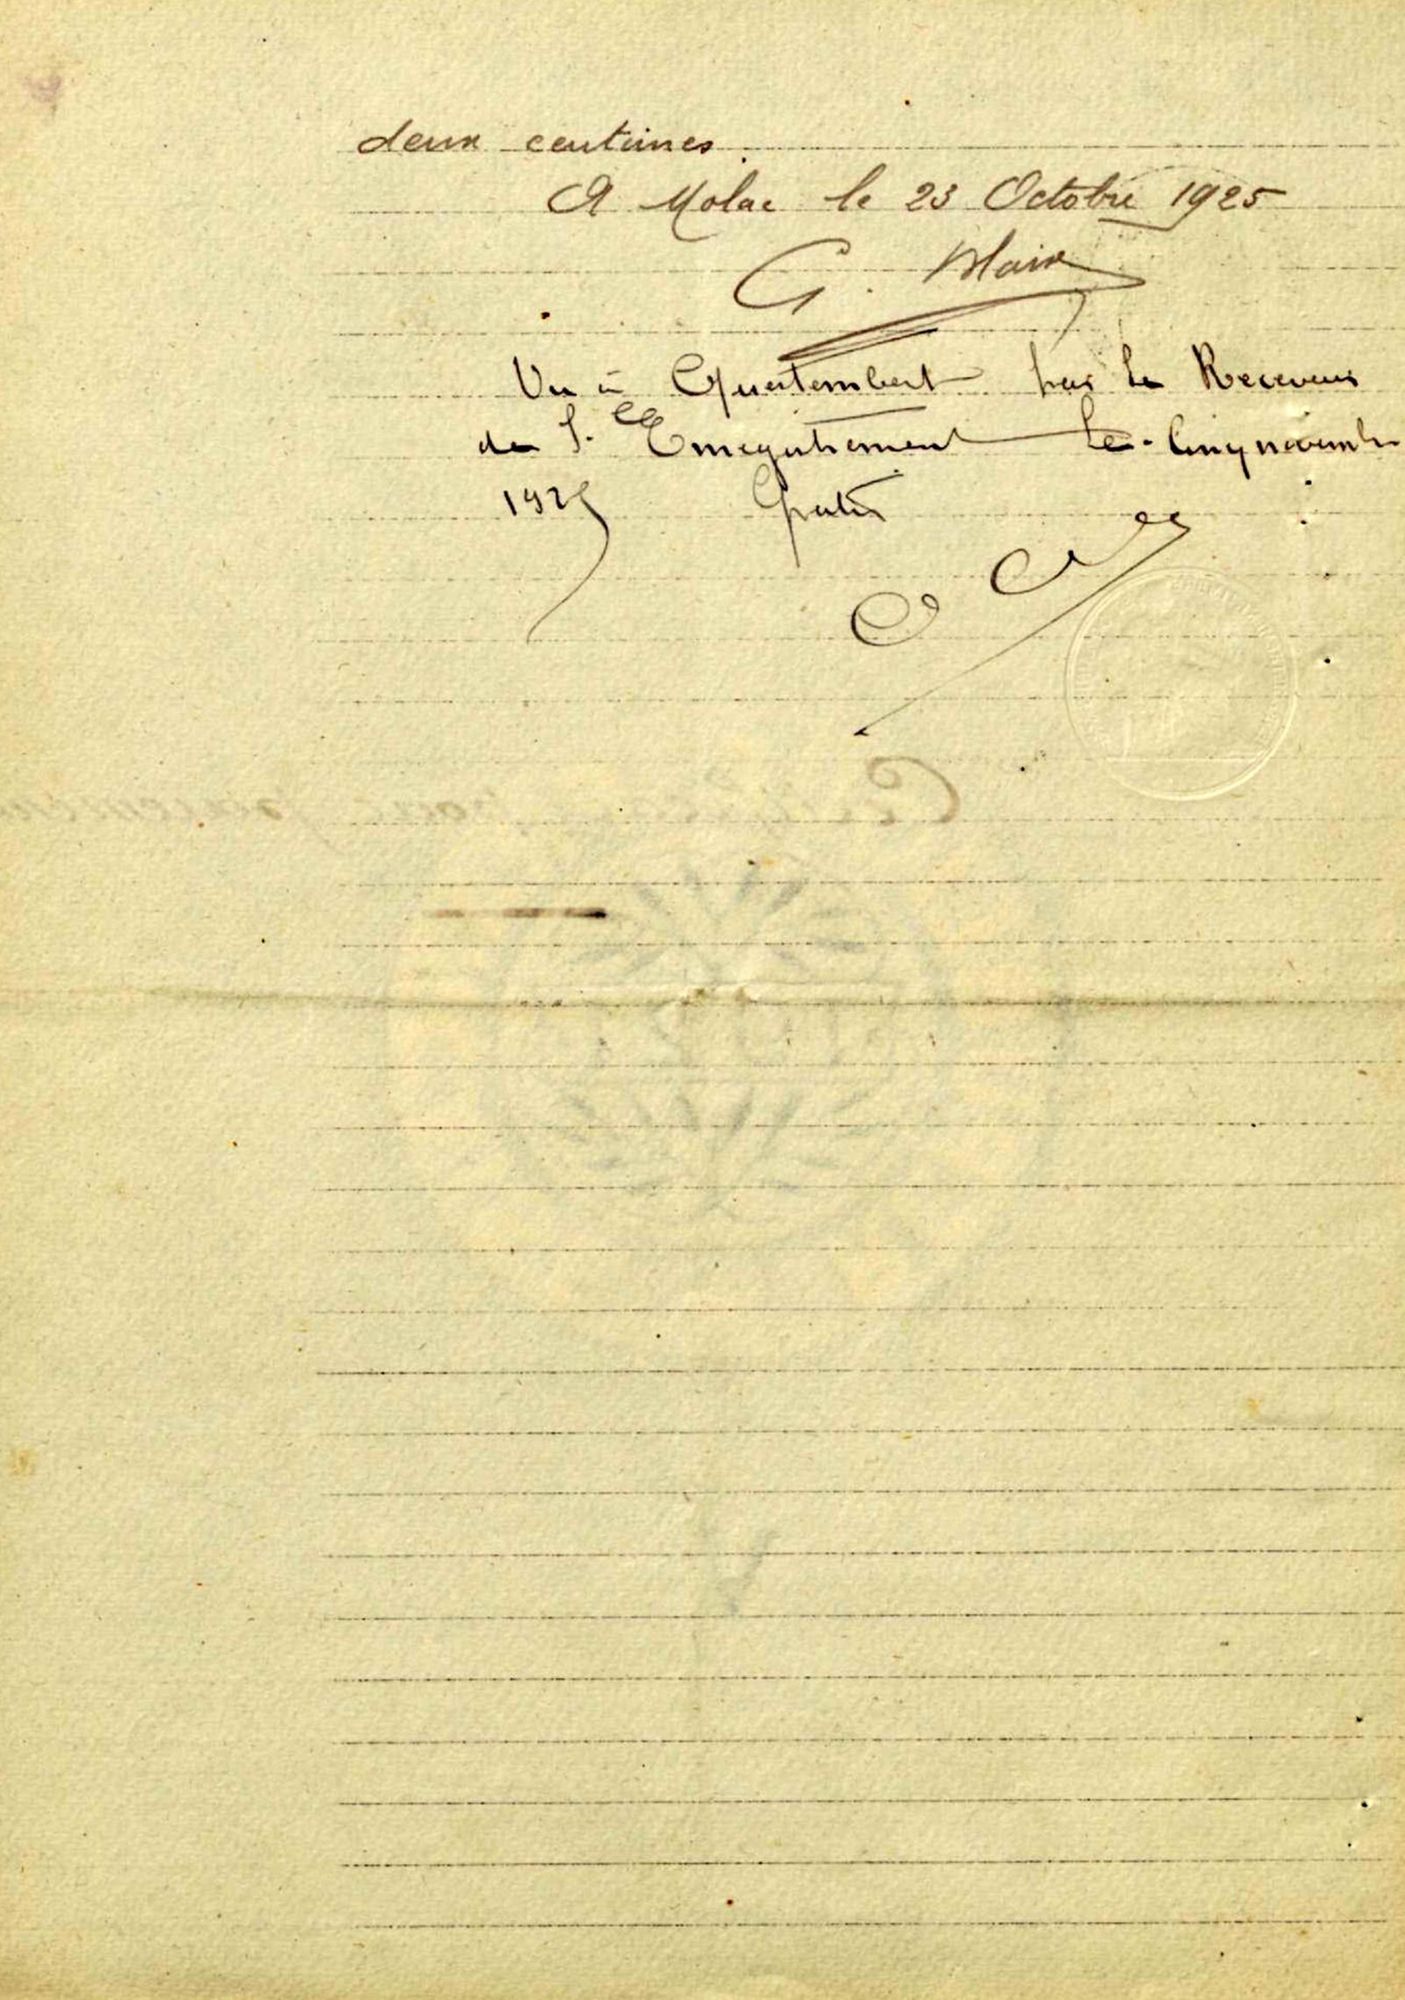 deux centimes
A Molac le 23 Octobre 1925
G.
Vu à Questembert par le Receveur
de l'Enregistrement le cinq novembre
1925 Gratis